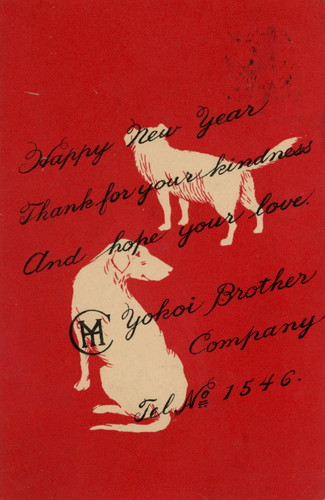 Happy New Year
Thank for your kindness
And hope your love.
HM Yokoi Brother
Company
Tel No 1546.